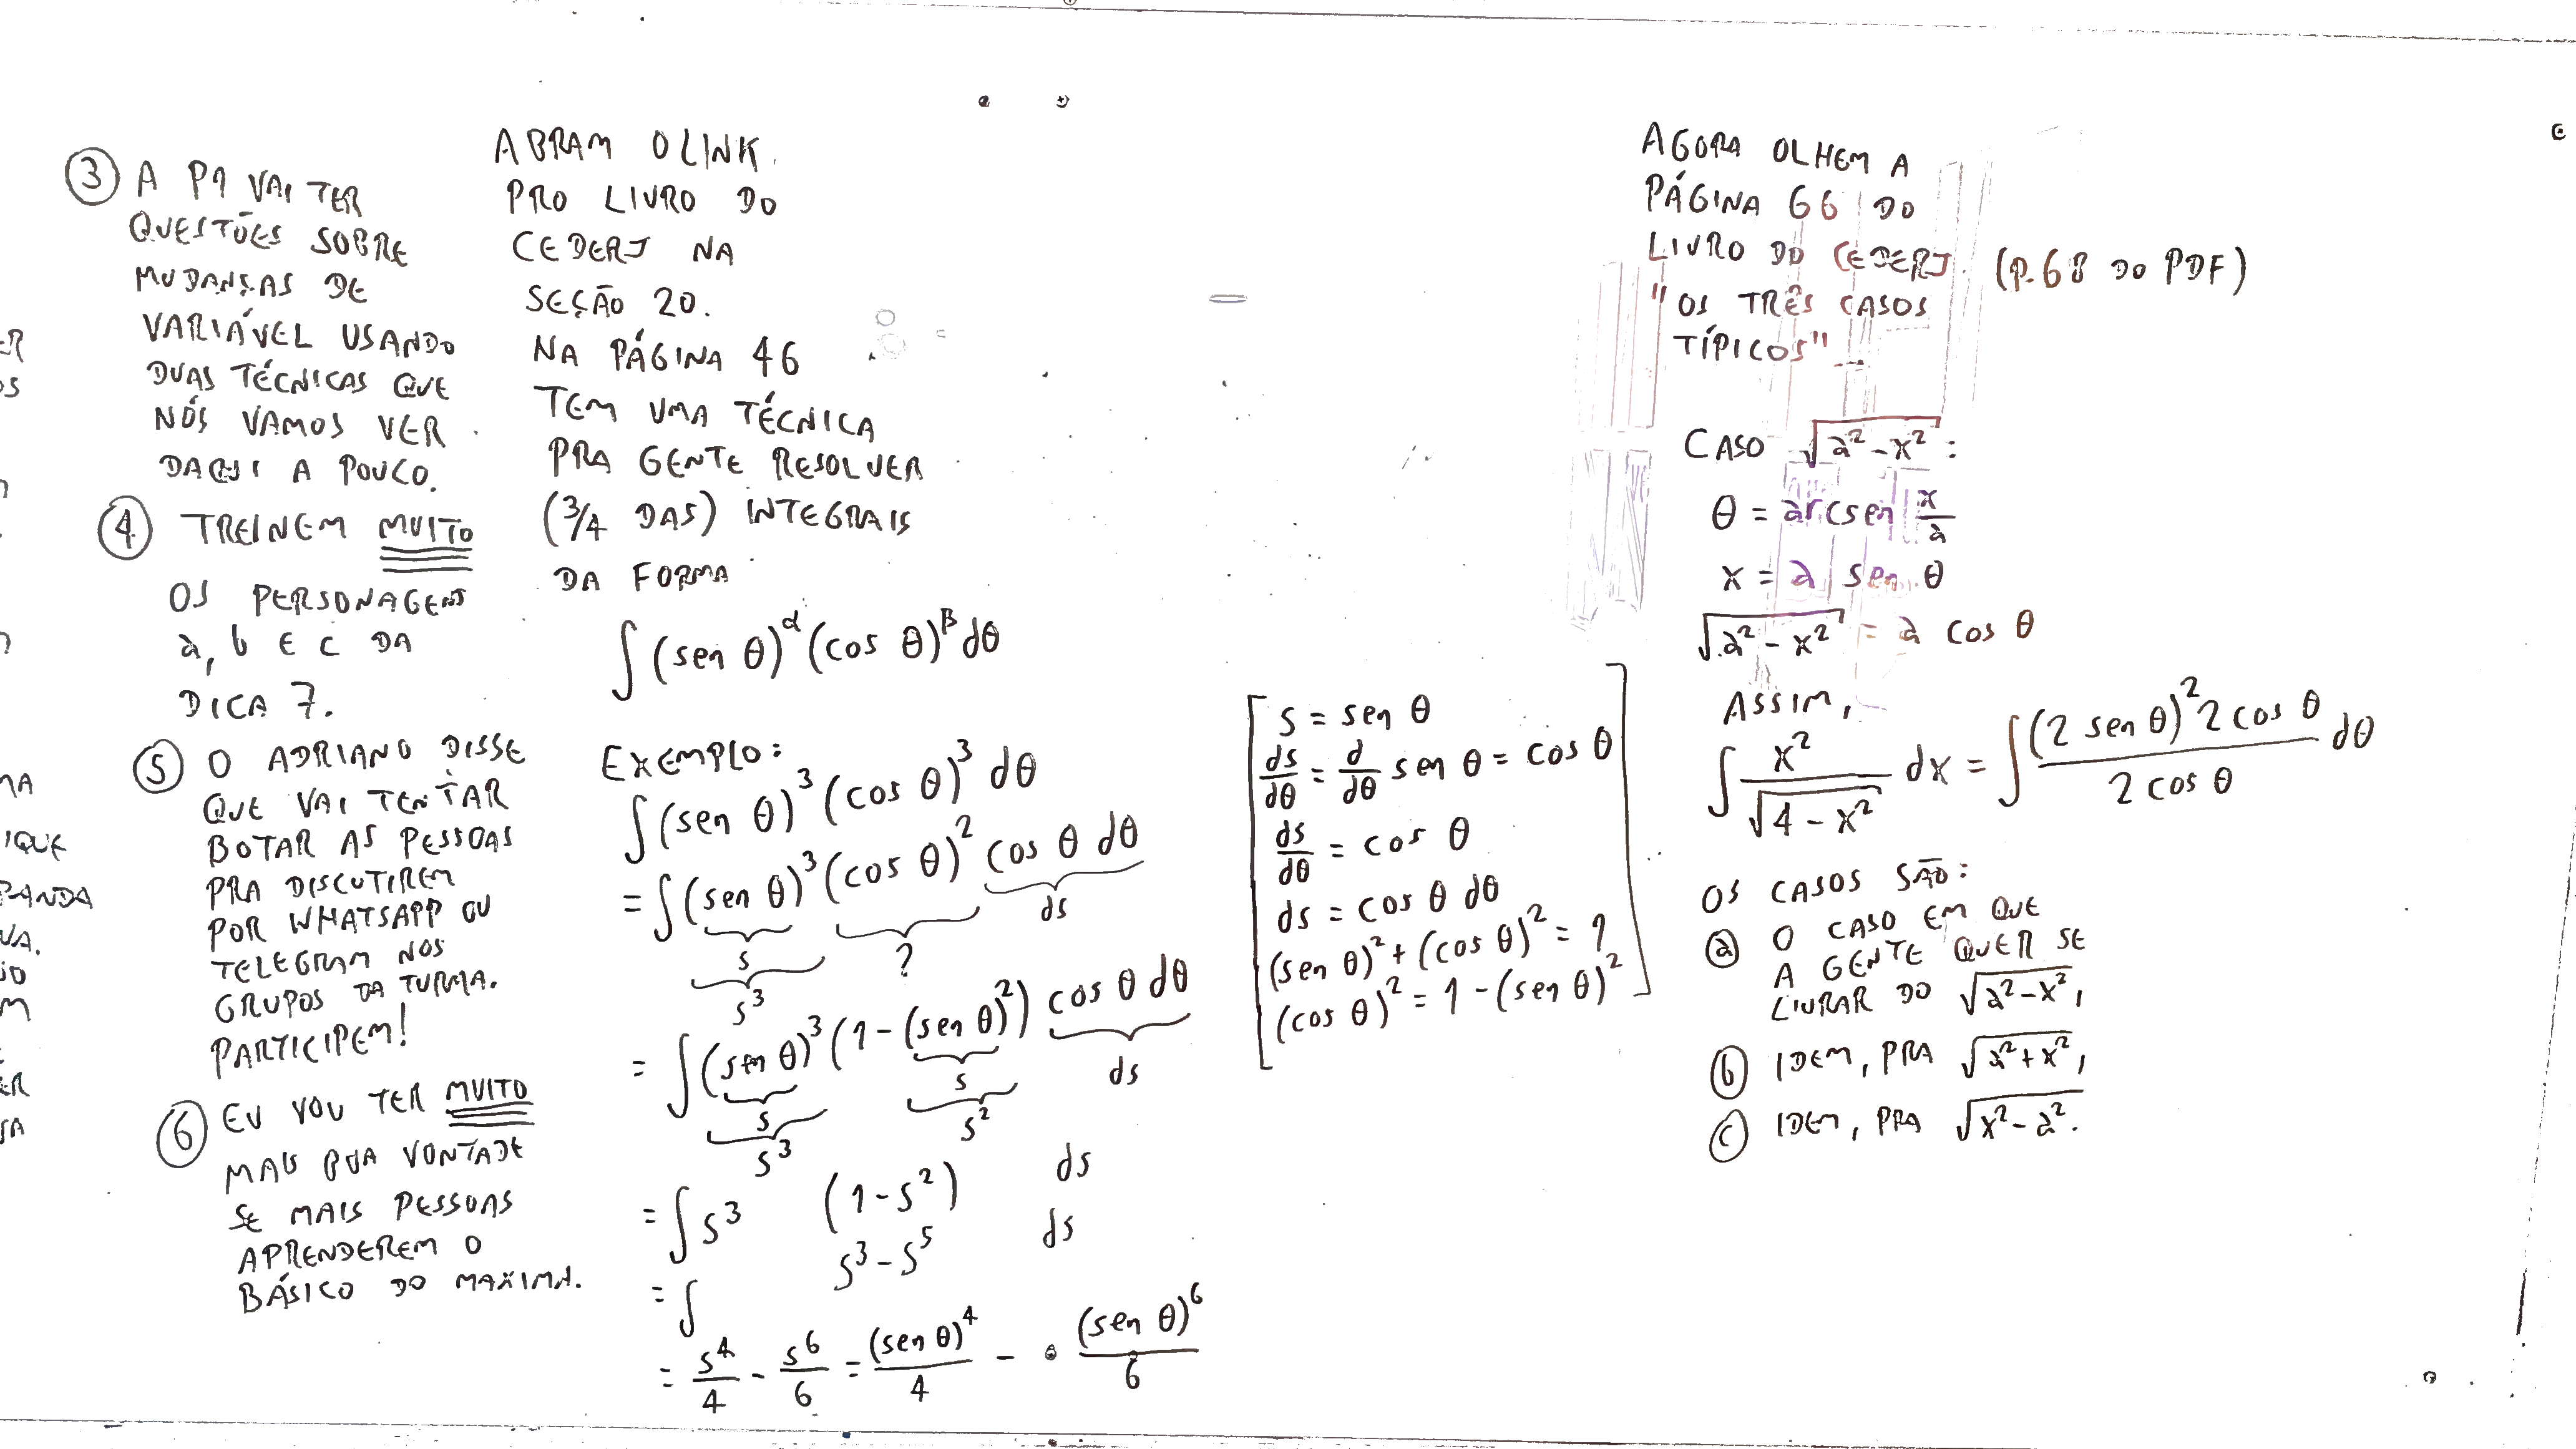 ER
OS
MA
IQUE
BANDA
VA.
ÃO
M
ER
SA
③ A P1 VAI TER
QUESTÕES SOBRE
MUDANÇAS DE
VARIÁVEL USANDO
DUAS TÉCNICAS QUE
NÓS VAMOS VER
DAQUI A POUCO.
④ TREINEM MUITO
OS PERSONAGENS
a, b E c DA
DICA 7.
⑤ O ADRIANO DISSE
QUE VAI TENTAR
BOTAR AS PESSOAS
PRA DISCUTIREM
POR WHATSAPP OU
TELEGRAM NOS
GRUPOS DA TURMA.
PARTICIPEM!
⑥ EU VOU TER MUITO
MAIS BOA VONTADE
SE MAIS PESSOAS
APRENDEREM O
BÁSICO DO MAXIMA.
ABRAM O LINK
PRO LIVRO DO
CEDERJ NA
SEÇÃO 20.
NA PÁGINA 46
TEM UMA TÉCNICA
PRA GENTE RESOLVER
(3/4 DAS) INTEGRAIS
DA FORMA
∫ (sen θ)^α (cos θ)^β dθ
EXEMPLO:
∫ (sen θ)³ (cos θ)³ dθ
= ∫ (sen θ)³ (cos θ)² cos θ dθ
s ? ds
s³
= ∫ (sen θ)³ (1 - (sen θ)²) cos θ dθ
s s ds
s³ s²
= ∫ s³ (1 - s²) ds
= ∫ s³ - s⁵ ds
= s⁴/4 - s⁶/6 = (sen θ)⁴/4 - (sen θ)⁶/6
s = sen θ
ds/dθ = d/dθ sen θ = cos θ
ds/dθ = cos θ
ds = cos θ dθ
(sen θ)² + (cos θ)² = 1
(cos θ)² = 1 - (sen θ)²
AGORA OLHEM A
PÁGINA 66 DO
LIVRO DO CEDERJ (P.68 DO PDF)
"OS TRÊS CASOS
TÍPICOS"
CASO √(a² - x²):
θ = arcsen x/a
x = a sen θ
√(a² - x²) = a cos θ
ASSIM,
∫ x²/√(4 - x²) dx = ∫ (2 sen θ)² 2 cos θ / 2 cos θ dθ
OS CASOS SÃO:
ⓐ O CASO EM QUE
A GENTE QUER SE
LIVRAR DO √(a² - x²),
ⓑ IDEM, PRA √(a² + x²),
ⓒ IDEM, PRA √(x² - a²).